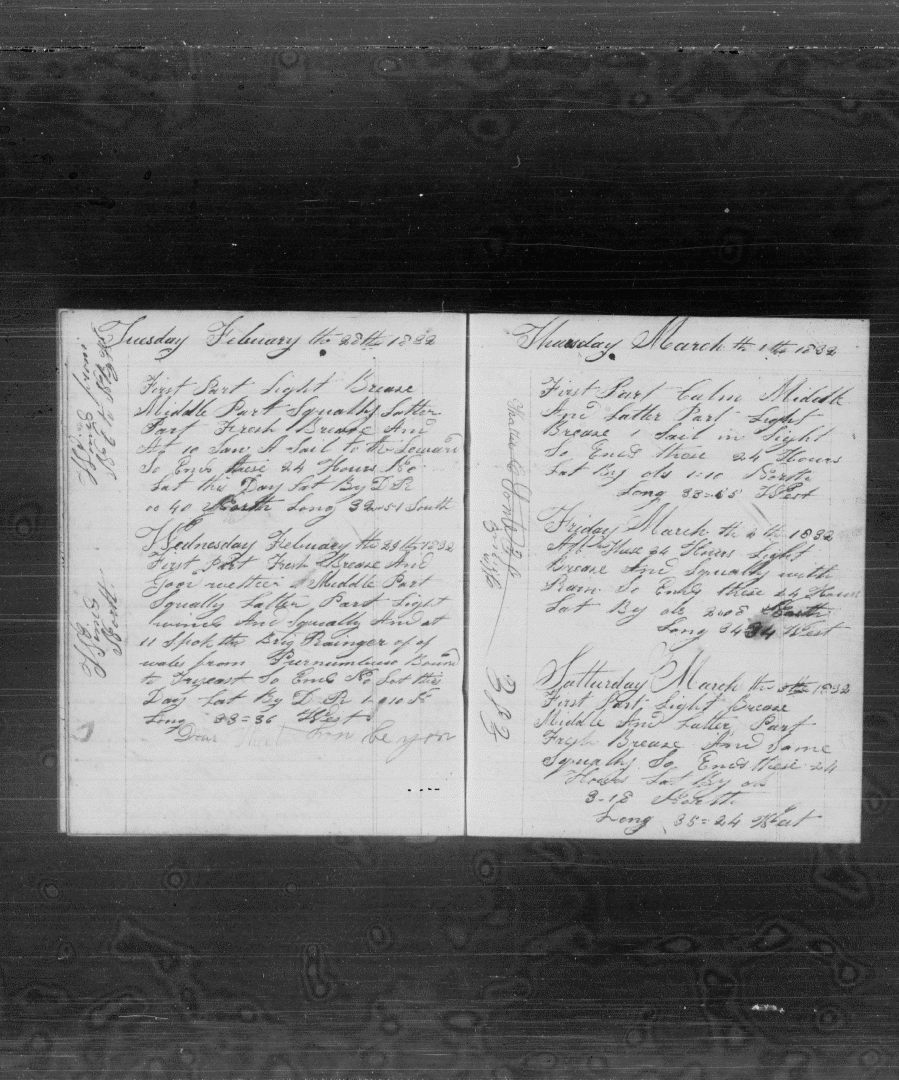 Tuesday Febuary the 28th 1832
First Part Light Brease
Middle Part Squally Latter
Part Fresh Brease And
At 10 Saw A Sail to the Leward
So Ends these 24 Hours No
Lat this Day Lat By D R
00 40 North Long 32=51 South
Wednesday Febuary the 29th 1832
First Part Fresh Brease And
Goor wether Middle Part
Squally Latter Part Light
winds And Squally And at
11 Spok the Brig Rainger of of
wales from Purnumbuco Bound
to Tryeast So Ends No Lat this
Day Lat By D R 1=010
Long 33=36 West
Dear be you
Wind from
Wind
North
Thursday March the 1th 1832
First Part Calm Middle
And Latter Part Light
Brease 1 Sail in Sight
So Ends these 24 Hours
Lat By obs 1=10 North
Long 33=15 West
Friday March the 2th 1832
All these 24 Hours Light
Brease And Squally with
Rain So Ends these 24 Hours
Lat By obs 2=08 North
Long 34 34 West
Satturday March the 3th 1832
First Part Light Brease
Middle And Latter Part
Fresh Brease And some
Squalls So Ends these 24
Hours Lat By ob
3=18 North
Long 35=24 West